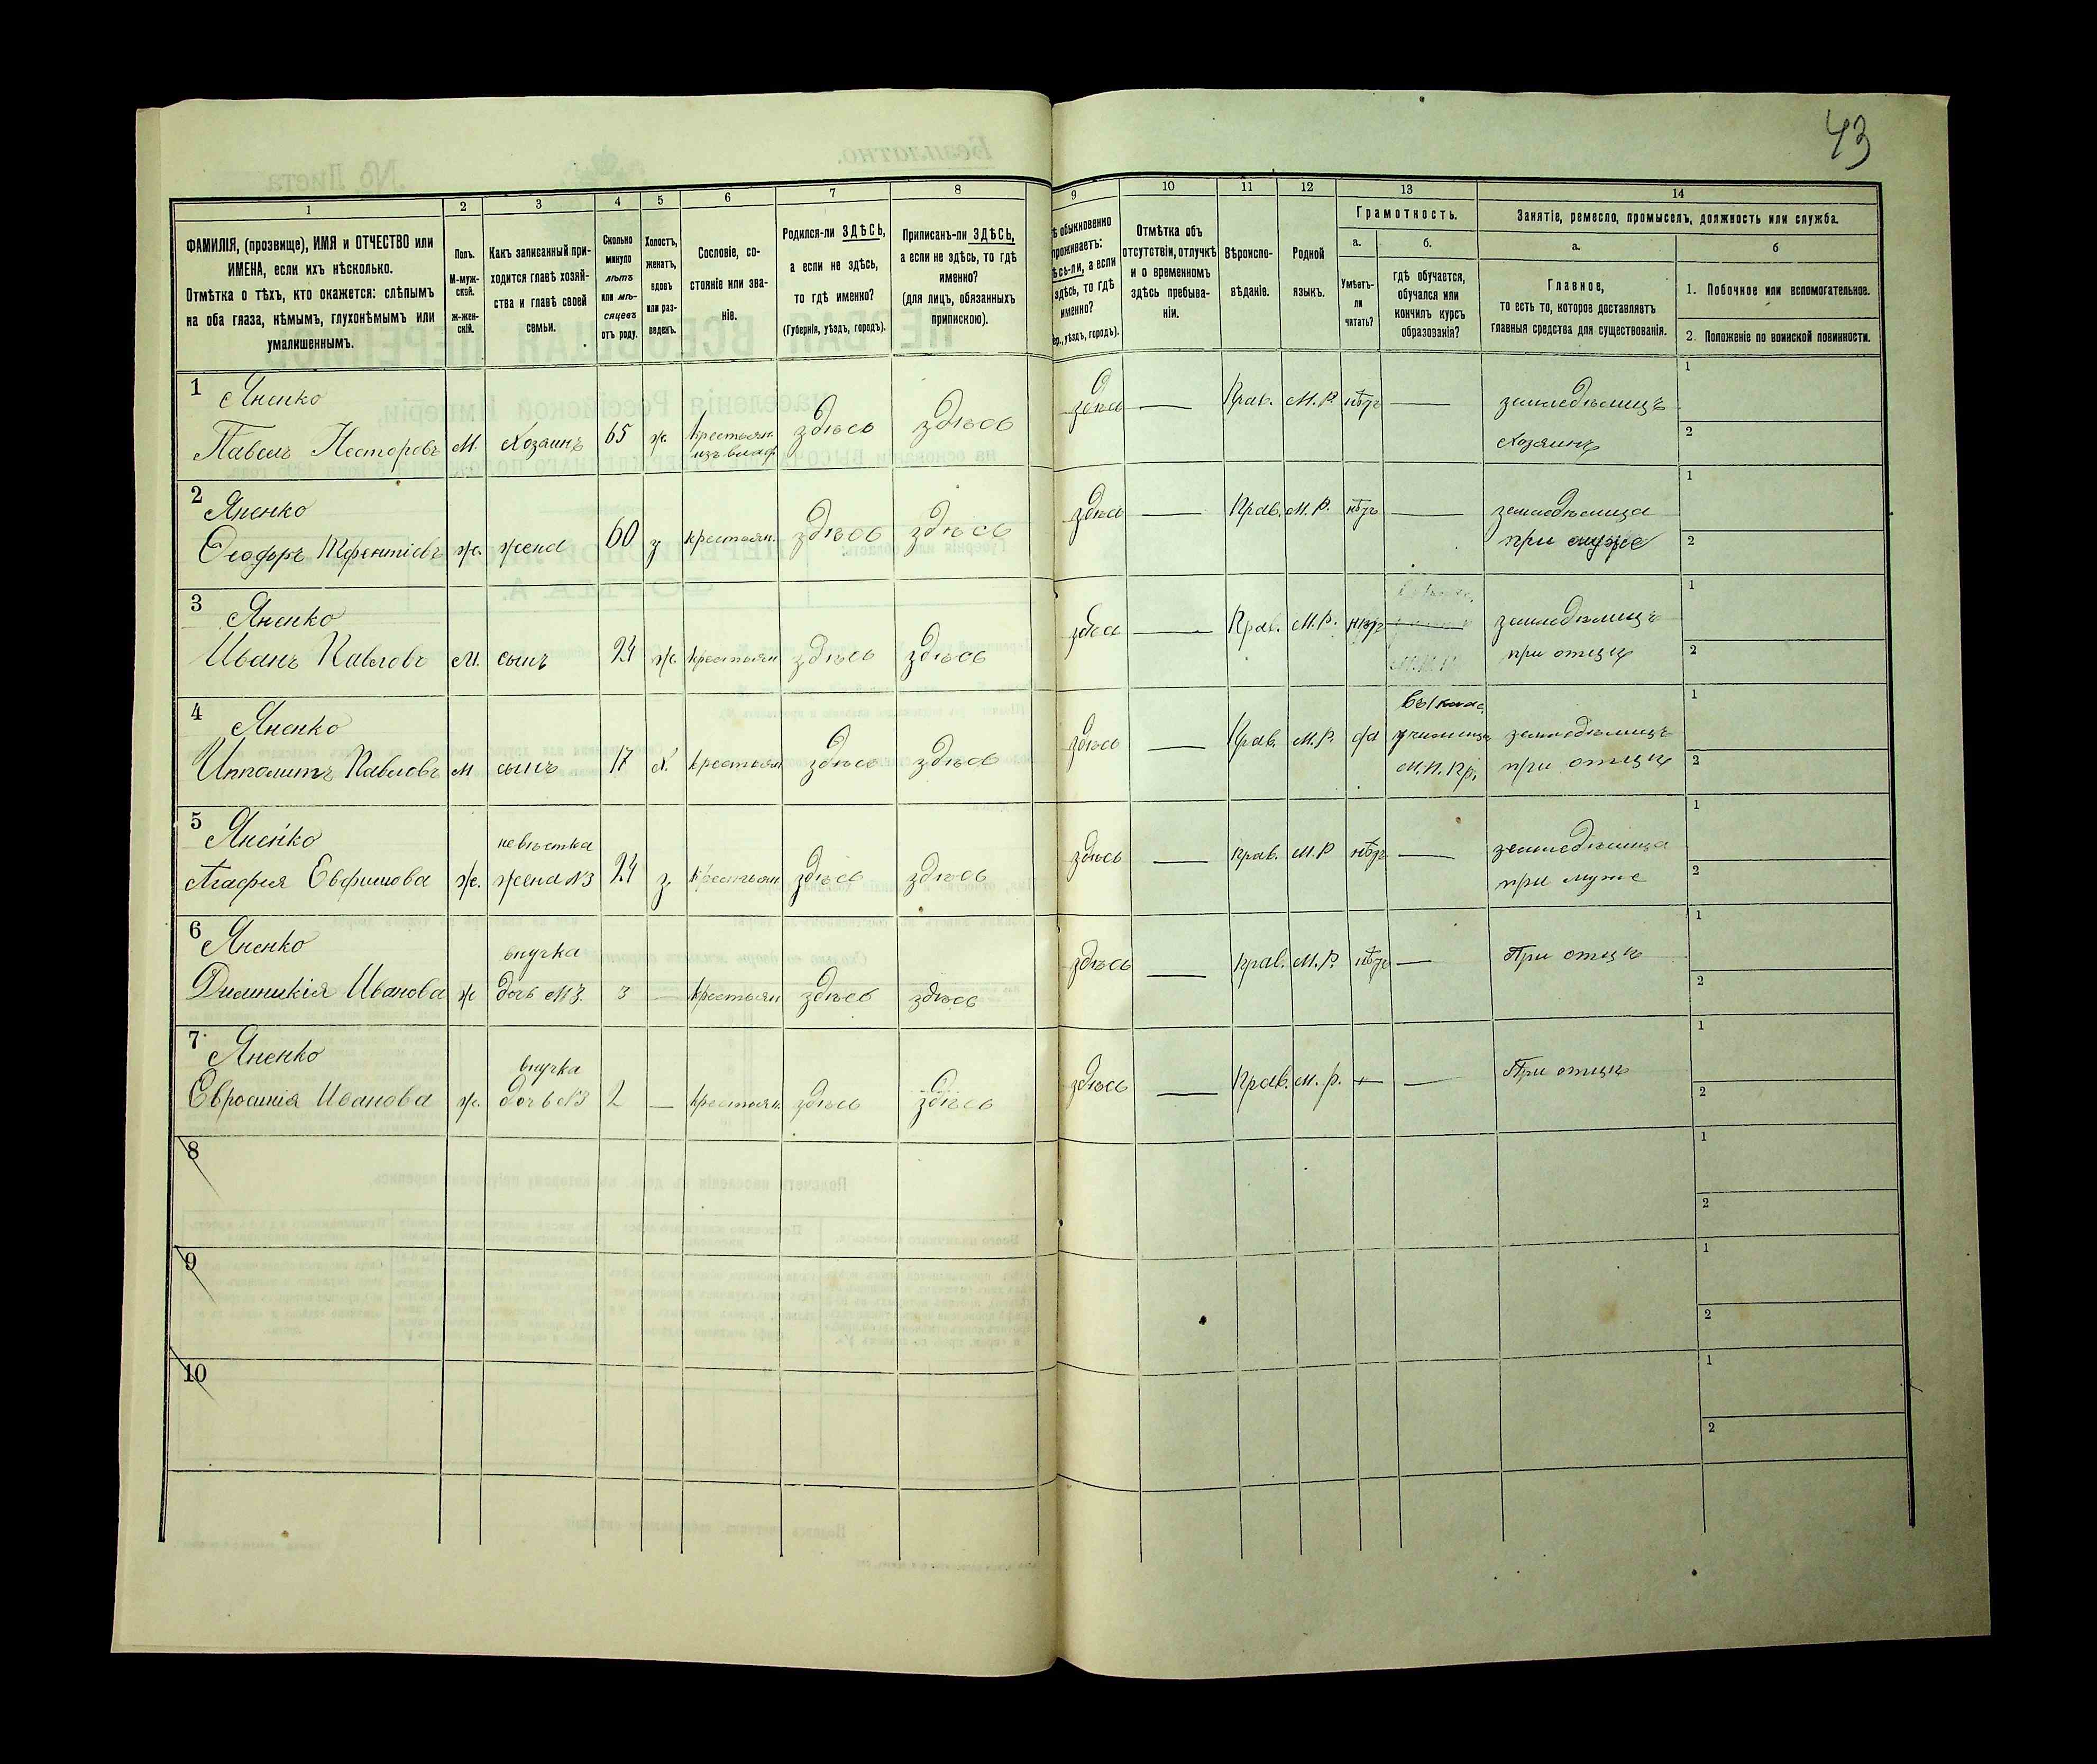 43
1
2
3
4
5
6
7
8
9
10
11
12
13
14
ФАМИЛІЯ, (прозвище), ИМЯ и ОТЧЕСТВО или
ИМЕНА, если ихъ нѣсколько.
Отмѣтка о тѣхъ, кто окажется: слѣпымъ
на оба глаза, нѣмымъ, глухонѣмымъ или
умалишеннымъ.
Полъ.
М-муж-
ской.
Ж-жен-
скій.
Какъ записанный при-
ходится главѣ хозяй-
ства и главѣ своей
семьи.
Сколько
минуло
лѣтъ
или мѣ-
сяцевъ
отъ роду.
Холостъ,
женатъ,
вдовъ
или раз-
веденъ.
Сословіе, со-
стояніе или зва-
ніе.
Родился-ли ЗДѢСЬ,
а если не здѣсь,
то гдѣ именно?
(Губернія, уѣздъ, городъ).
Приписанъ-ли ЗДѢСЬ,
а если не здѣсь, то гдѣ
именно?
(для лицъ, обязанныхъ
припискою).
ѣ обыкновенно
проживаетъ:
ѣсь-ли, а если
здѣсь, то гдѣ
именно?
ер., уѣздъ, городъ).
Отмѣтка объ
отсутствіи, отлучкѣ
и о временномъ
здѣсь пребыва-
ніи.
Вѣроиспо-
вѣданіе.
Родной
языкъ.
Грамотность.
а.
Умѣетъ-
ли
читать?
б.
гдѣ обучается,
обучался или
кончилъ курсъ
образованія?
Занятіе, ремесло, промыселъ, должность или служба.
а.
Главное,
то есть то, которое доставляетъ
главныя средства для существованія.
б
1. Побочное или вспомогательное.
2. Положеніе по воинской повинности.
1 Яненко
Павелъ Несторовъ м. Хозяинъ 65 ж. крестьян. здѣсь здѣсь здѣсь — Прав. М.Р. нѣтъ — земледѣлецъ 1
изъ влад.
Хозяинъ 2
2 Яненко
ж. жена 60 з крестьян. здѣсь здѣсь здѣсь — Прав. М.Р. нѣтъ — земледѣлица 1
при мужѣ 2
3 Яненко
Иванъ Павловъ М. сынъ 24 ж. крестьян здѣсь здѣсь здѣсь — Прав. М.Р. нѣтъ — земледѣлецъ 1
при отцѣ 2
4 Яненко
Ипполитъ Павловъ м сынъ 17 х. крестьян здѣсь здѣсь здѣсь — Прав. М.Р. да въ 1 клас.
училищѣ
М.Н.Пр.
земледѣлецъ 1
при отцѣ 2
5 Яненко
невѣстка
Агафія Евфимова ж. жена №3 24 з. крестьян здѣсь здѣсь здѣсь — прав. М.Р нѣтъ — земледѣлица 1
при мужѣ 2
6 Яненко
внучка
Иванова ж дочь №3. 3 — крестьян здѣсь здѣсь здѣсь — прав. М.Р. нѣтъ — При отцѣ 1
2
7 Яненко
внучка
Евросинія Иванова ж. дочь №3 2 — крестьян. здѣсь здѣсь здѣсь — Прав. м. р. — — При отцѣ 1
2
8 1
2
9 1
2
10 1
2